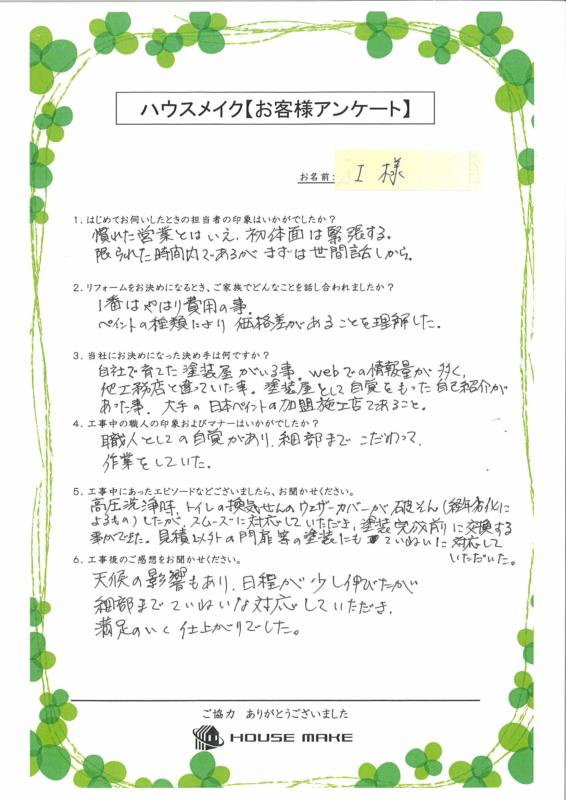 ハウスメイク【お客様アンケート】
お名前: I 様
1. はじめてお伺いしたときの担当者の印象はいかがでしたか?
慣れた営業とはいえ、初体面は緊張する。
限られた時間内であるが まずは世間話しから。
2. リフォームをお決めになるとき、ご家族でどんなことを話し合われましたか?
1番はやはり費用の事。
ペイントの種類により 価格差があることを理解した。
3. 当社にお決めになった決め手は何ですか?
自社で育てた塗装屋がいる事。webでの情報量が多く、
他工務店と違っていた事。塗装屋として自覚をもった自己紹介が
あった事。大手の日本ペイントの加盟施工店であること。
4. 工事中の職人の印象およびマナーはいかがでしたか?
職人としての自覚があり、細部まで こだわって、
作業をしていた。
5. 工事中にあったエピソードなどございましたら、お聞かせください。
高圧洗浄時、トイレの換気せんのウェザーカバーが破そん(経年劣化に
よるもの)したが、スムーズに対応していただき、塗装完成前に交換する
事ができた。見積以外の門扉等の塗装にもていねいに対応して
いただいた。
6. 工事後のご感想をお聞かせください。
天候の影響もあり、日程が少し伸びたが
細部までていねいな対応していただき、
満足のいく仕上がりでした。
ご協力 ありがとうございました
HOUSE MAKE